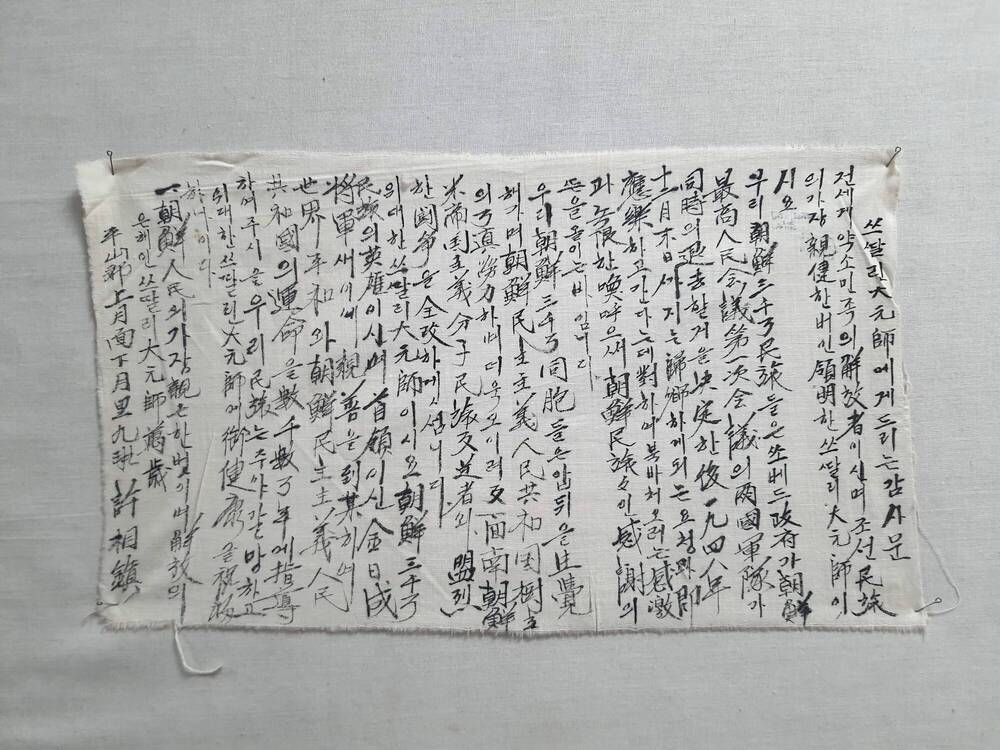 쓰딸린大元師에게드리는감사문
전세게약소미족의解放者이시며조선民族
의가장親健한버인領明한쓰딸리大元師이
시요
우리朝鮮三千万民族들은쏘베트政府가朝鮮
最高人民会議第一次会議의兩國軍隊가
同時의退去할거을決定한後一九四八年
十二月末日까지는歸鄕하게되는요청와同
應樂하고간다는데對하여북바처오러는感激
과 한喚呼으써朝鮮民族々인感謝의
뜬을올이는바임니다
우리朝鮮三千万同胞들은압뒤을生覺
해가며朝鮮民主主義人民共和国樹立
의万眞勞力하며더욱오이려又一面南朝鮮
米帝国主義分子民族反逆者와盟烈
한闘争을全改하게섬니다
의대한쓰딸리大元師이시요朝鮮三千万
民族의英雄이시며首領이신金日成
将軍새에께親善을到某하시며
世界平和와朝鮮民主主義人民
共和國의運命을數千數万年에指導
하여주시을우리民族는주야갈망하고
위대한쓰딸린大元師에御健康을祝
하나이다
一朝鮮人民의가장親은한벗이며解放의
은헤인쓰딸리大元師萬歲
平山郡上月面下月里九班許相鎭